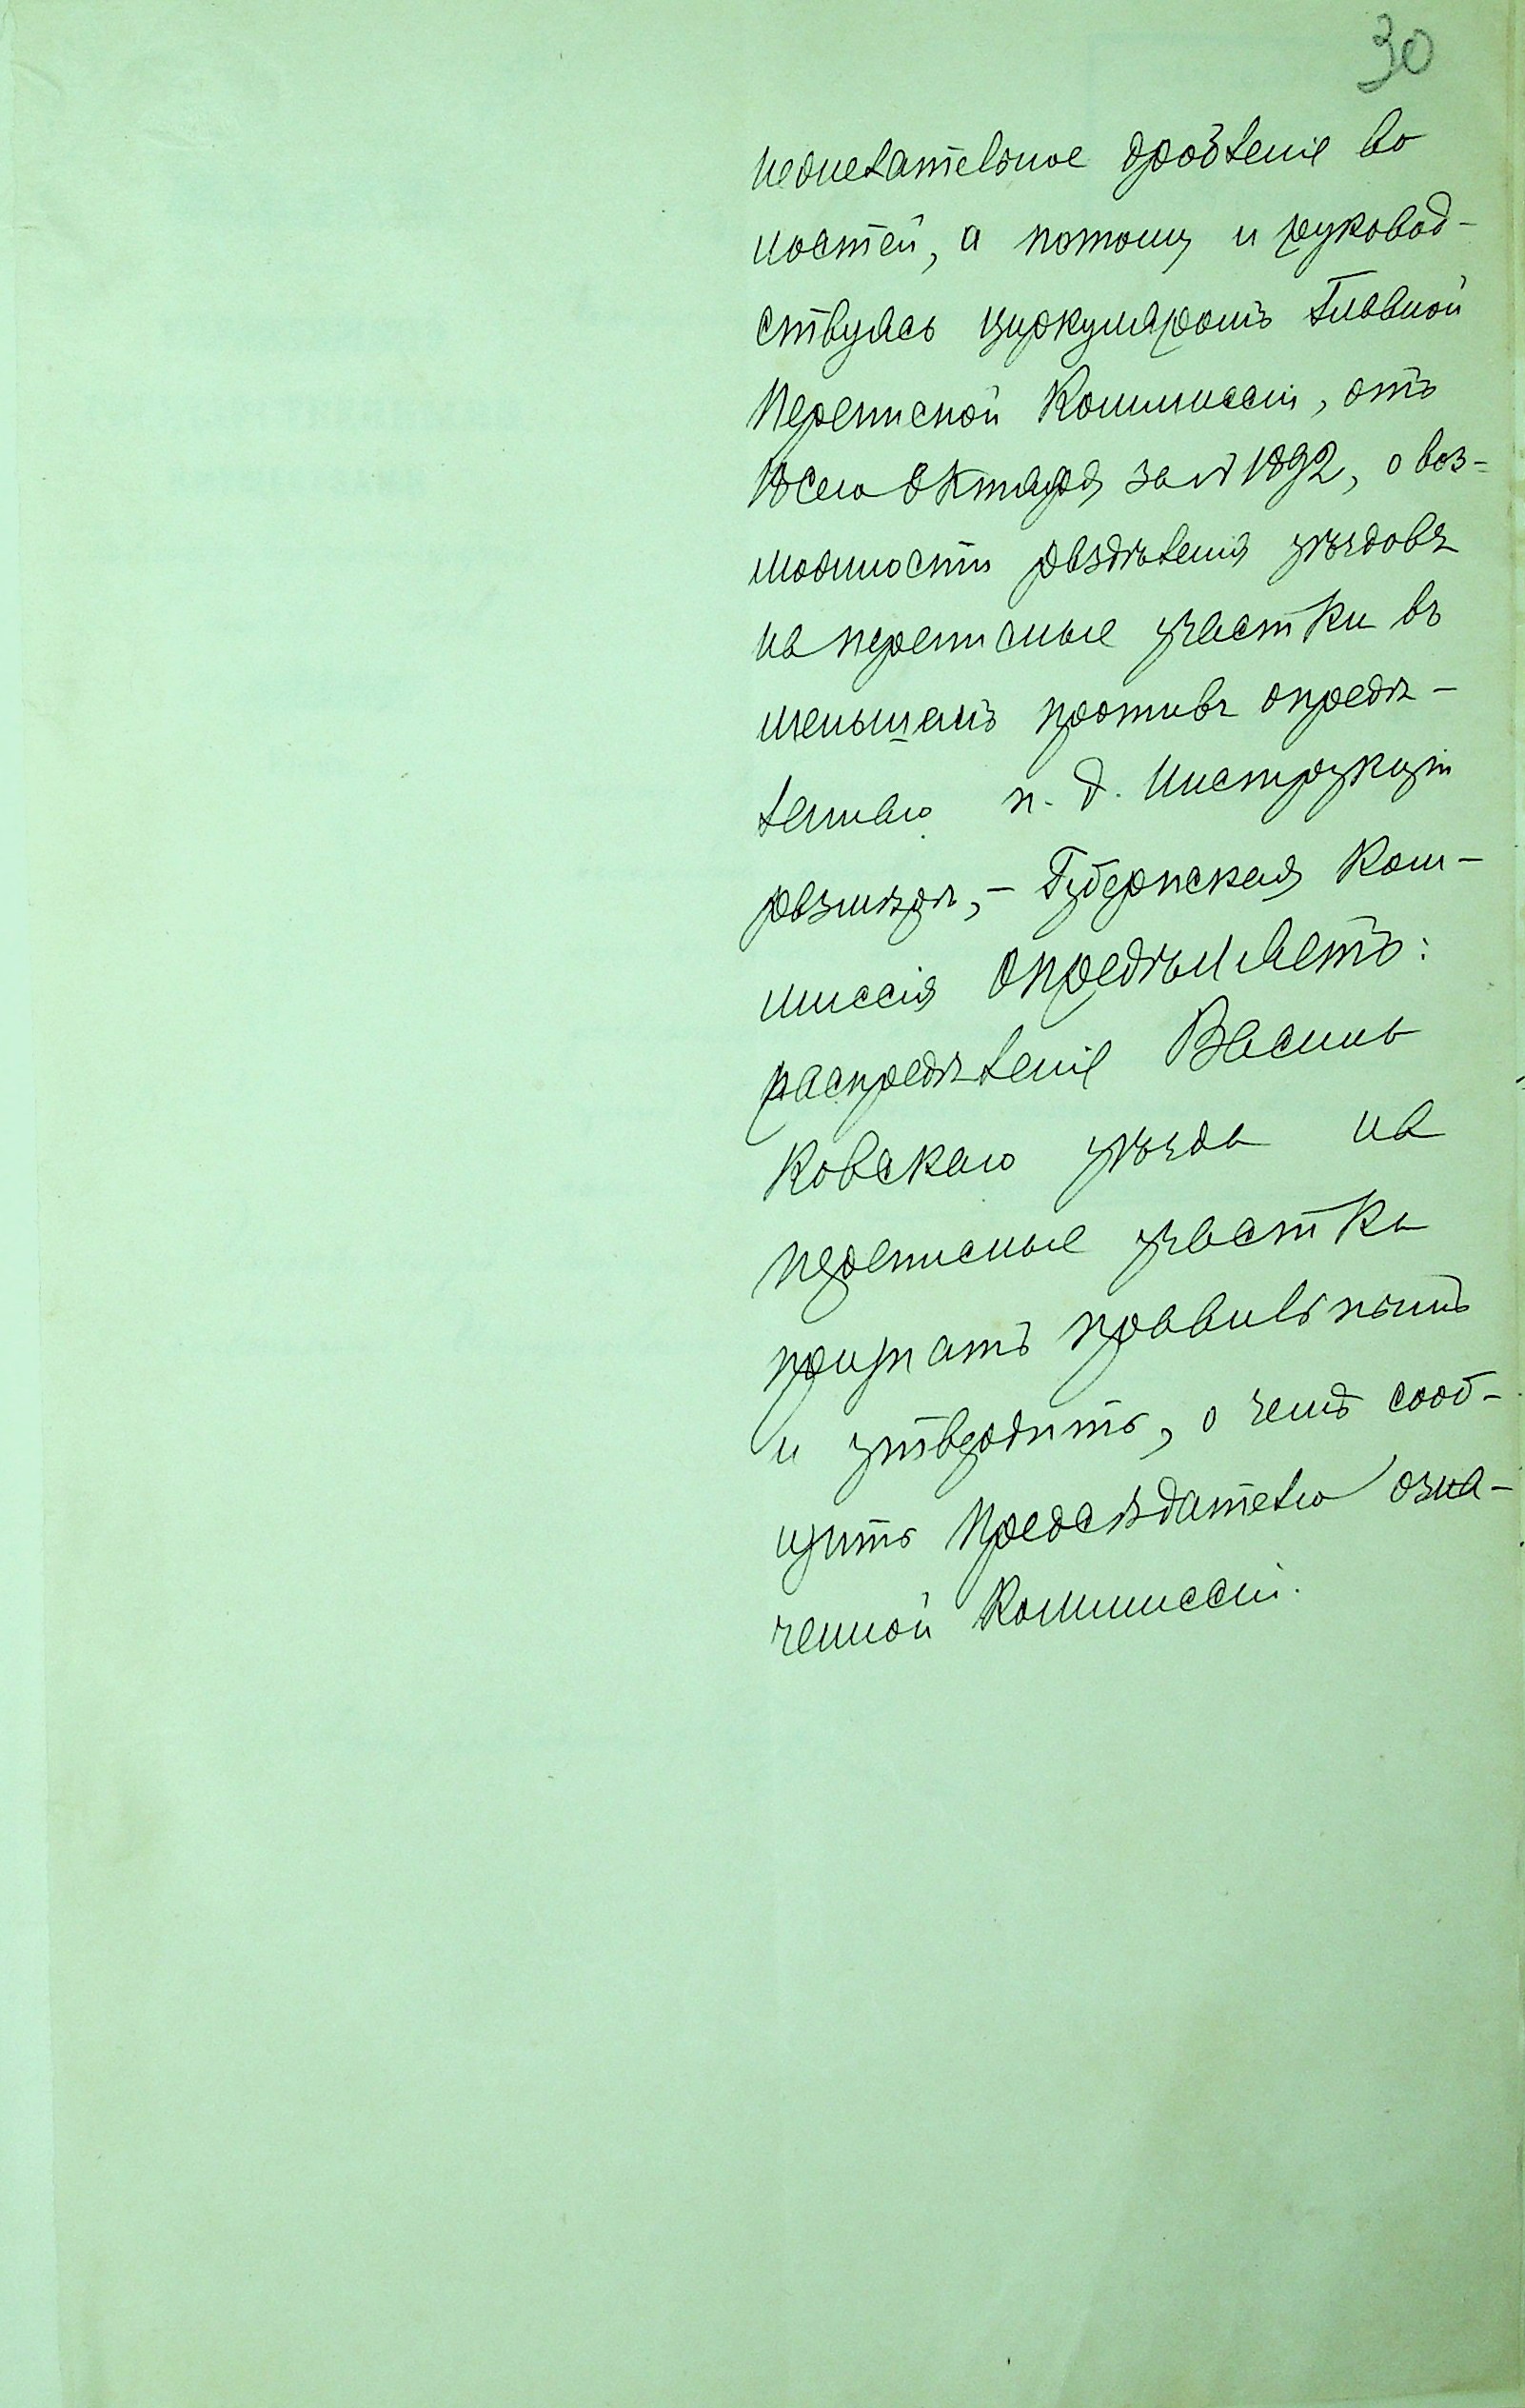 30
нежелательное дробленiе во
лостей, а потому и руковод-
ствуясь циркуляромъ Главной
Переписной Коммиссiи, отъ
18 сего Октября за № 1892, о воз-
можности раздѣленiя уѣздовъ
на переписные участки въ
меньшемъ противъ опредѣ-
леннаго п. д. Инструкцiи
размѣрѣ, - Губернская Ком-
миссiя Опредѣляетъ:
распредѣленiе Василь
ковскаго уѣзда на
переписные участки
признать правильнымъ
и утвердить, о чемъ сооб-
щить Предсѣдателю озна-
ченной Коммиссiи.